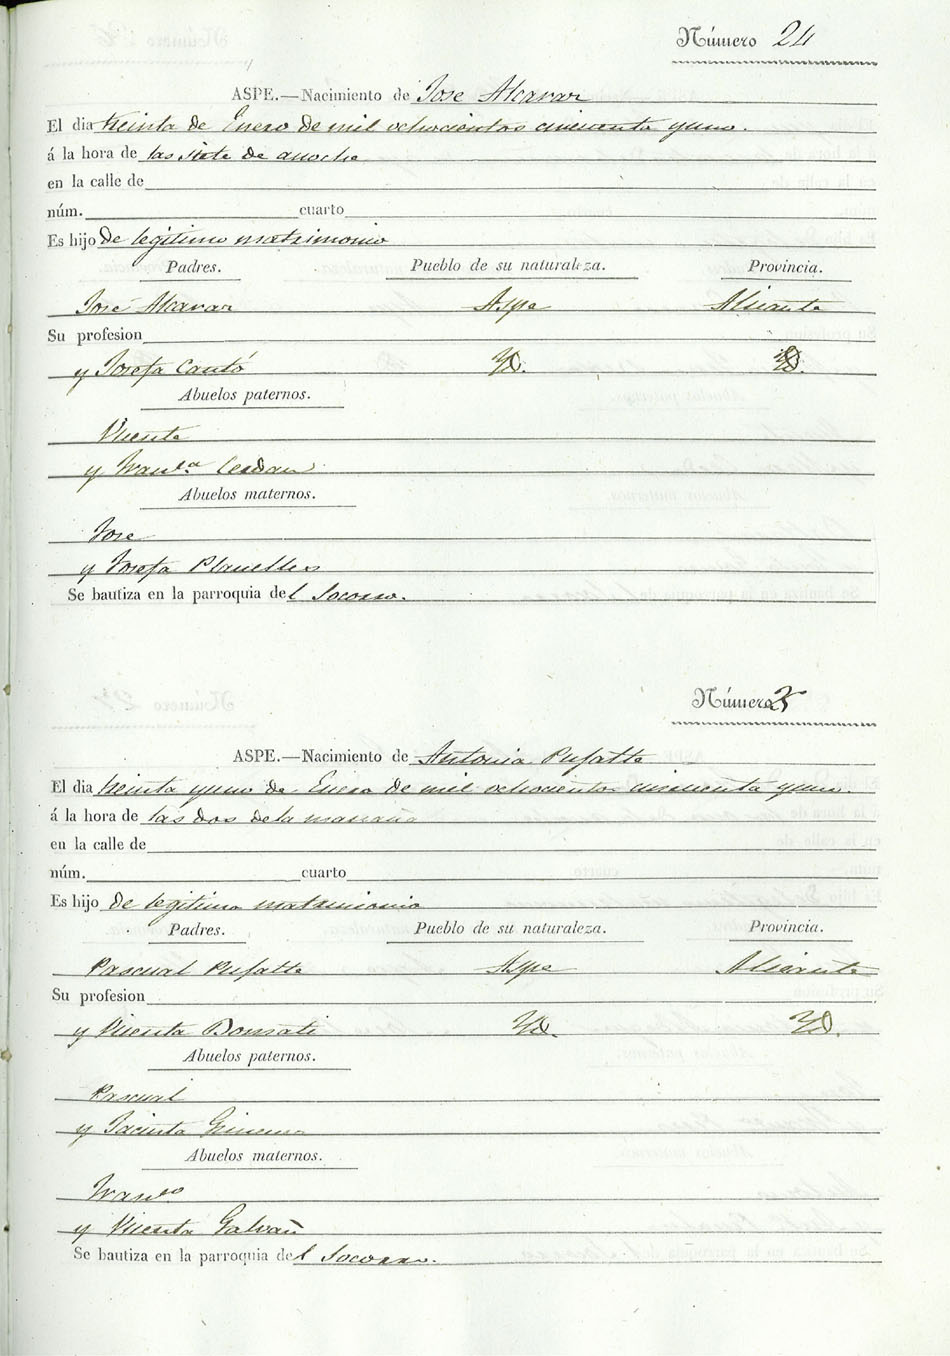 Número 24
ASPE.—Nacimiento de Jose Alcavar
El dia treinta de Enero de mil ochocientos cincuenta y uno.
á la hora de las siete de anoche
en la calle de
núm. cuarto
Es hijo de legitimo matrimonio
Padres. Pueblo de su naturaleza. Provincia.
José Alcavar Aspe Alicante
Su profesion
y Josefa Cantó Yd. Yd.
Abuelos paternos.
Vicente
y Franca Cerdan
Abuelos maternos.
Jose
y Josefa Planelles
Se bautiza en la parroquia del Socorro.
Número 25
ASPE.—Nacimiento de Antonia Pufalte
El dia treinta y uno de Enero de mil ochocientos cincuenta y uno.
á la hora de las dos de la mañana
en la calle de
núm. cuarto
Es hijo de legitimo matrimonio
Padres. Pueblo de su naturaleza. Provincia.
Pascual Pufalte Aspe Alicante
Su profesion
y Vicenta Bonmati Yd. Yd.
Abuelos paternos.
Pascual
y Jacinta Gimeno
Abuelos maternos.
Franco
y Vicenta Galvañ
Se bautiza en la parroquia del Socorro.